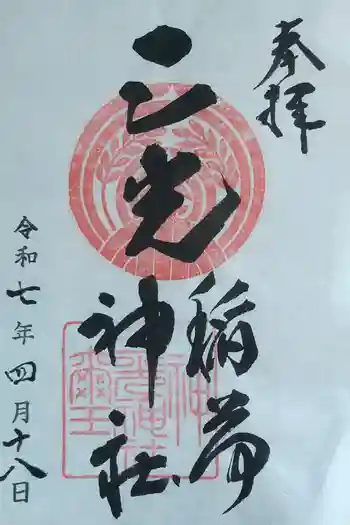 奉拝
三光稲荷神社
令和七年四月十八日